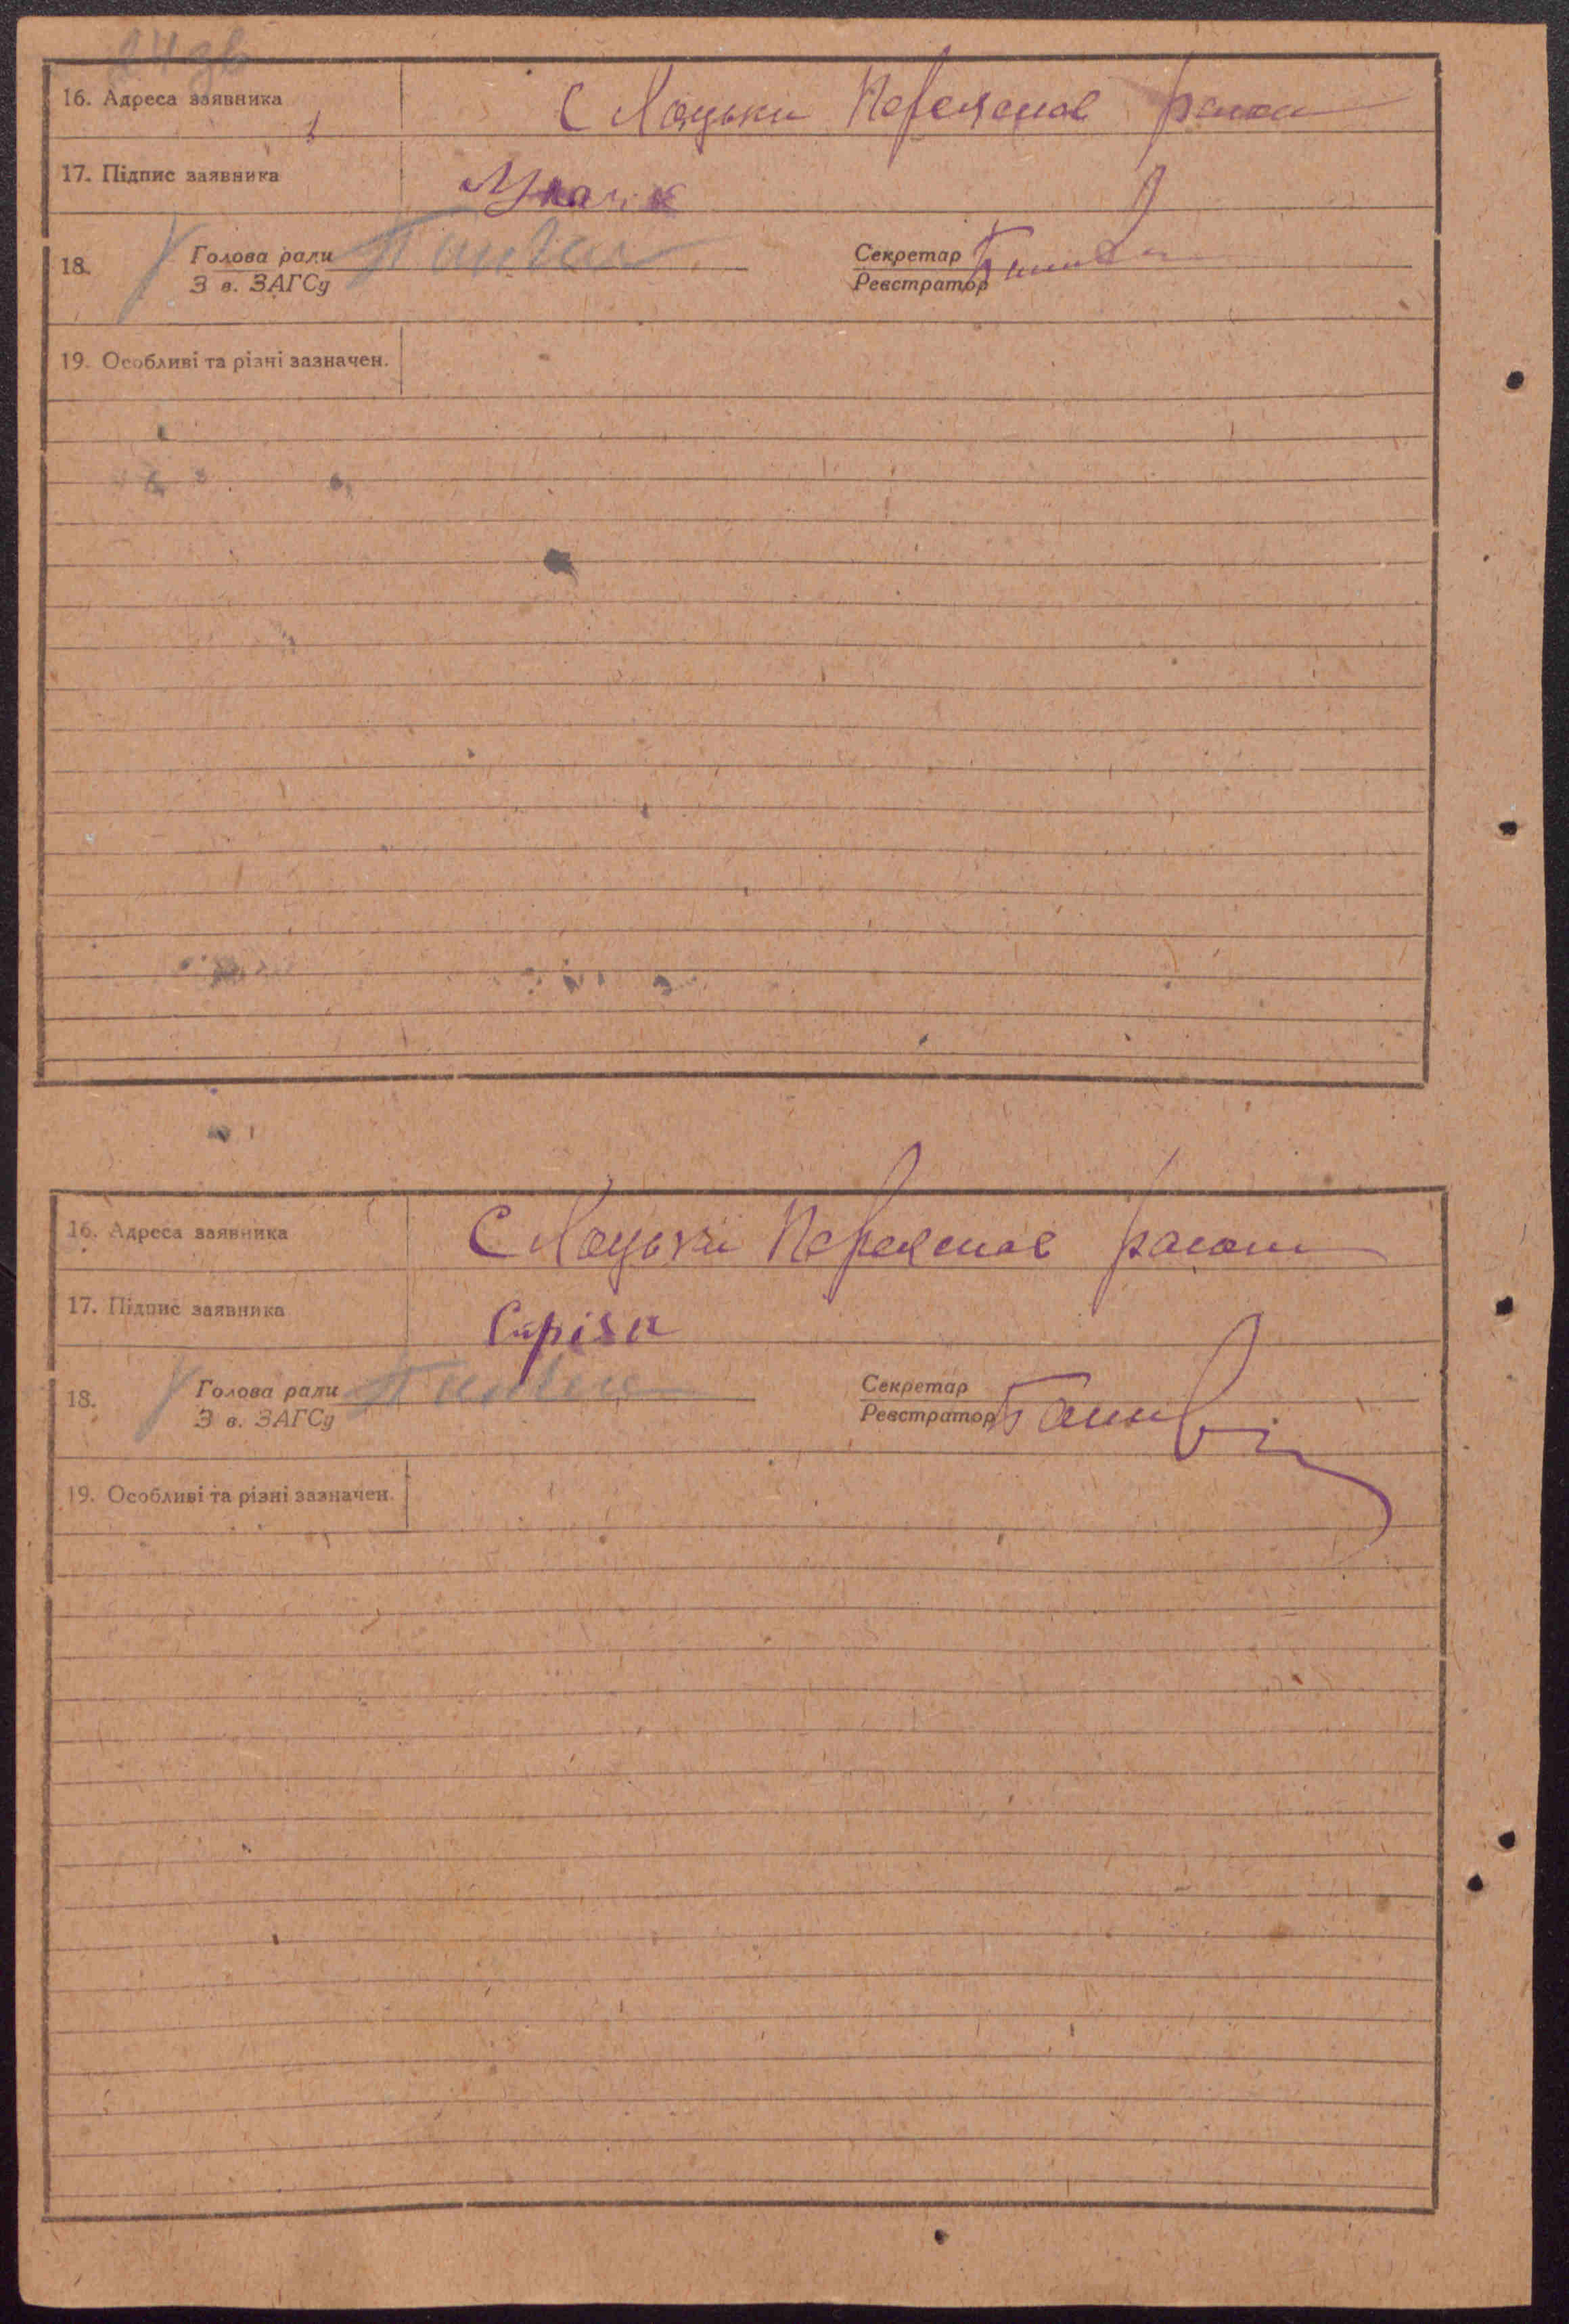 24 зв
16. Адреса заявника С Лоцьки Переяслав район
17. Підпис заявника
18. Голова ради Секретар
З в. ЗАГСу Реєстратор
19. Особливі та різні зазначен.
16. Адреса заявника С Лоцьки Переяслав район
17. Підпис заявника
18. Голова ради Секретар
З в. ЗАГСу Реєстратор
19. Особливі та різні зазначен.